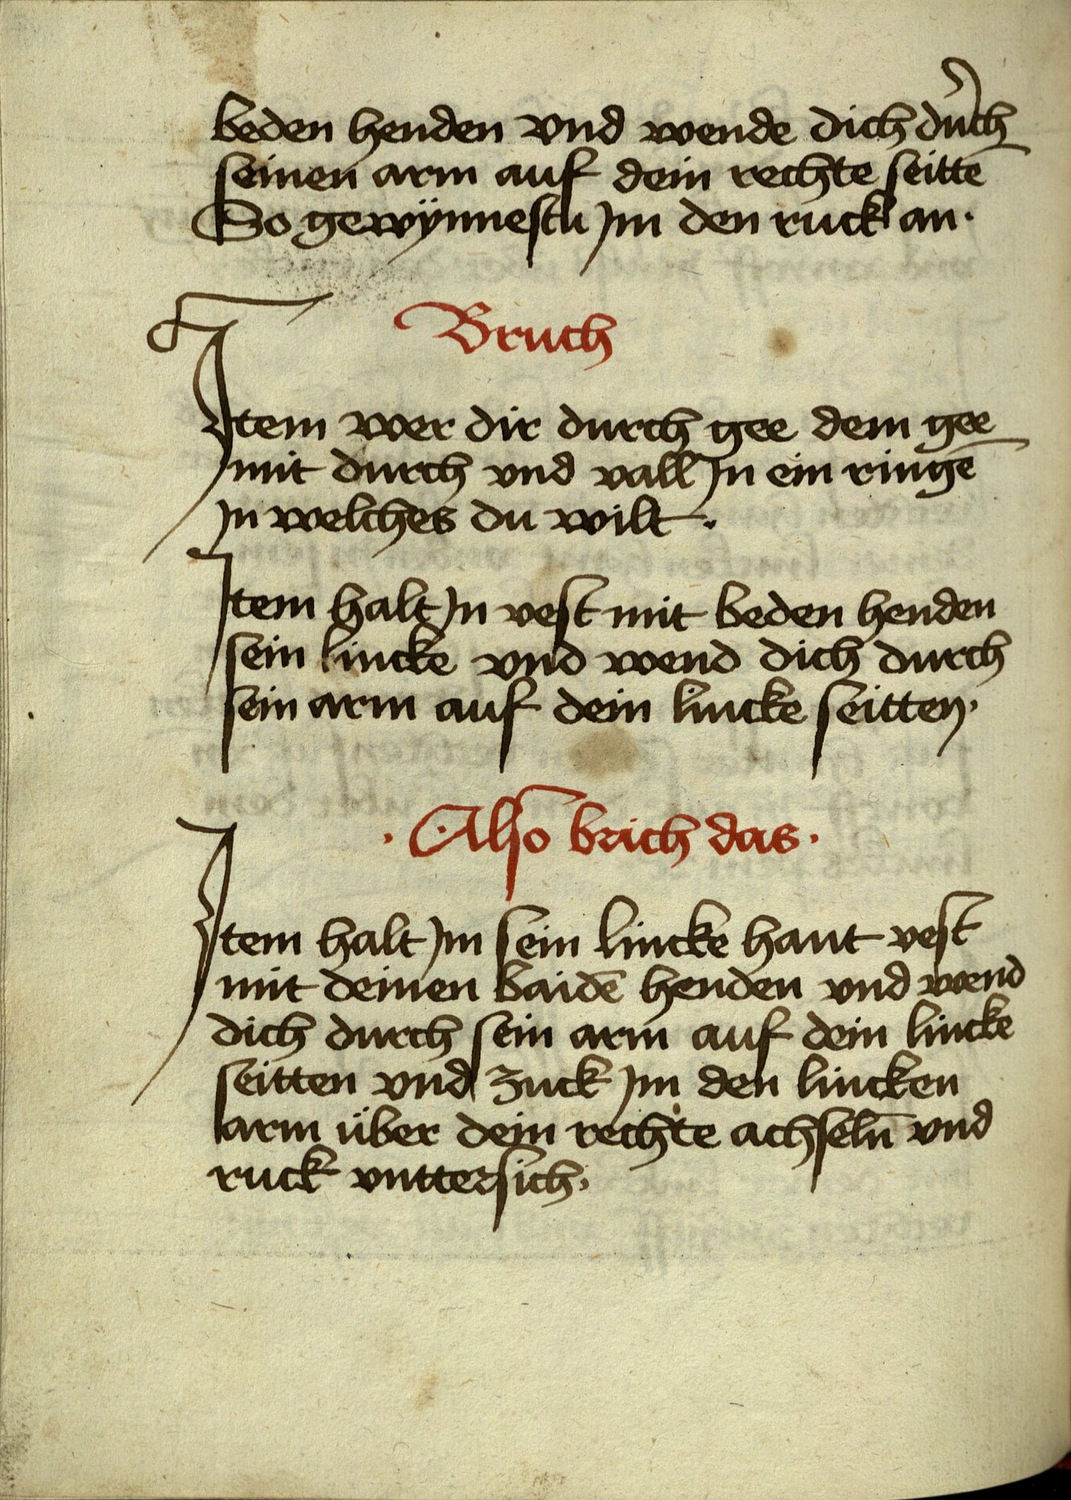 beden henden vnd wende dich durch
seinen arm auf dein rechte seittē
So gewÿnnestu Jm den ruck an·
Bruch
Jtem wer dir durch gee dem gee
mit durch vnd vall Jn ein ringē
Jn welches du wilt·
Jtem halt Jn vest mit beden henden
sein lincke vnd wend dich durch
sein arm auf dein lincke seitten·
· Also brich das ·
Jtem halt Jm sein lincke hant vest
mit deinen baidē henden vnd wend
dich durch sein arm auf dein lincke
seitten vnd zuck Jm den lincken
arm über dein rechte achselň vnd
ruck vnttersich·